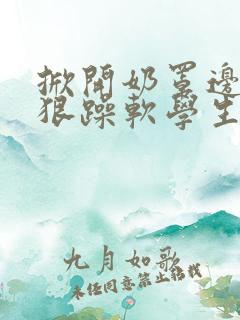 掀開奶罩邊
狠躁軟學生
九月如歌
未经同意禁止转载